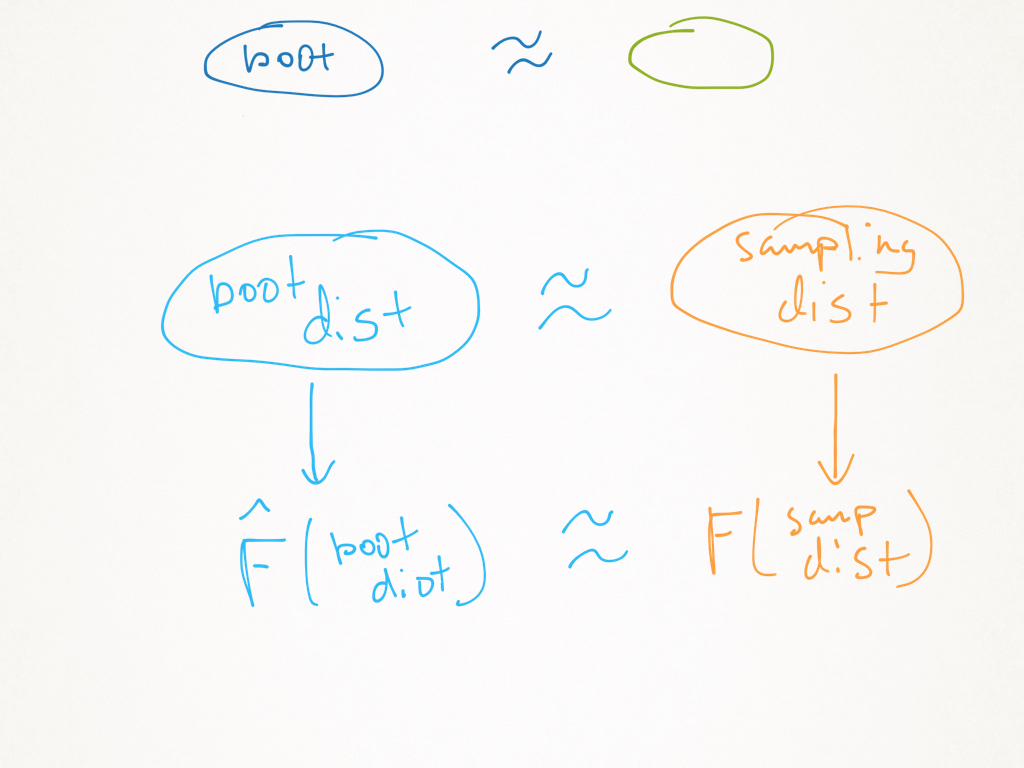 boot ≈
boot dist ≈ sampling dist
F̂(boot diot) ≈ F(samp dist)